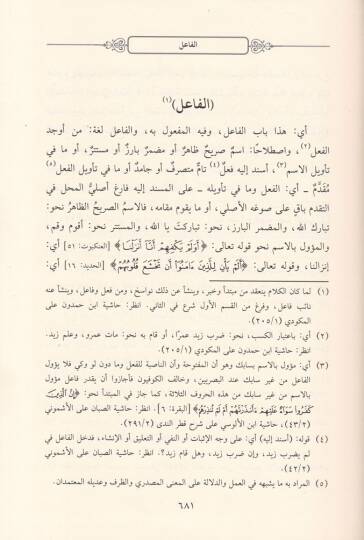 الفاعل
(الفاعل)(١)
أي: هذا باب الفاعل، وفيه المفعول به، والفاعل لغة: من أوجد
الفعل(٢)، واصطلاحًا: اسمٌ صريحٌ ظاهرٌ أو مضمرٌ بارزٌ أو مستترٌ، أو ما في
تأويل الاسم(٣)، أسند إليه فعلٌ(٤) تامٌّ متصرفٌ أو جامدٌ أو ما في تأويل الفعل(٥)
مُقَدَّمٌ ـ أي: الفعل وما في تأويله ـ على المسند إليه فارغ أصليُّ المحل في
التقدم باقٍ على صوغه الأصلي، أو ما يقوم مقامه، فالاسمُ الصريحُ الظاهرُ نحو:
تبارك الله، والمضمر البارز، نحو: تباركتَ يا الله، والمستتر نحو: أقوم وقم،
والمؤول بالاسم نحو قوله تعالى: ﴿أَوَلَمْ يَكْفِهِمْ أَنَّا أَنزَلْنَا﴾ [العنكبوت: ٥١] أي:
إنزالنا، وقوله تعالى: ﴿أَلَمْ يَأْنِ لِلَّذِينَ ءَامَنُوٓا۟ أَن تَخْشَعَ قُلُوبُهُمْ﴾ [الحديد: ١٦] أي:
(١) لما كان الكلام ينعقد من مبتدأ وخبر، وينشأ عن ذلك نواسخ، ومن فعل وفاعل، وينشأ عنه
نائب فاعل، وفرغ من القسم الأول شرع في الثاني. انظر: حاشية ابن حمدون على
المكودي (٢٠٥/١)
(٢) أي: باعتبار الكسب، نحو: ضرب زيد عمرًا، أو قام به نحو: مات عمرو، وعلم زيد.
انظر: حاشية ابن حمدون على المكودي (٢٠٥/١).
(٣) أي: المؤول بالاسم بسابك وهو أن المفتوحة وأن الناصبة للفعل وما دون لو وكي فلا يؤول
الفاعل من غير سابك عند البصريين، وخالف الكوفيون فأجازوا أن يقدر فاعل مؤول
بالاسم من غير سابك من هذه الحروف الثلاثة، كما جاز في المبتدأ نحو: ﴿إِنَّ ٱلَّذِينَ
كَفَرُوا۟ سَوَآءٌ عَلَيْهِمْ ءَأَنذَرْتَهُمْ أَمْ لَمْ تُنذِرْهُمْ﴾ [البقرة: ٦]. انظر: حاشية الصبان على الأشموني
(٤٣/٢)، حاشية ابن الألوسي على شرح قطر الندى (٢٩١/٢)
(٤) قوله: (أسند إليه) أي: على وجه الإثبات أو النفي أو التعليق أو الإنشاء، فدخل الفاعل في
لم يضرب زيد، وإن ضرب زيد، وهل قام زيد؟. انظر: حاشية الصبان على الأشموني
(٤٢/٢).
(٥) المراد به ما يشبهه في العمل والدلالة على المعنى المصدري والظرف وعديله المعتمدان.
٦٨١